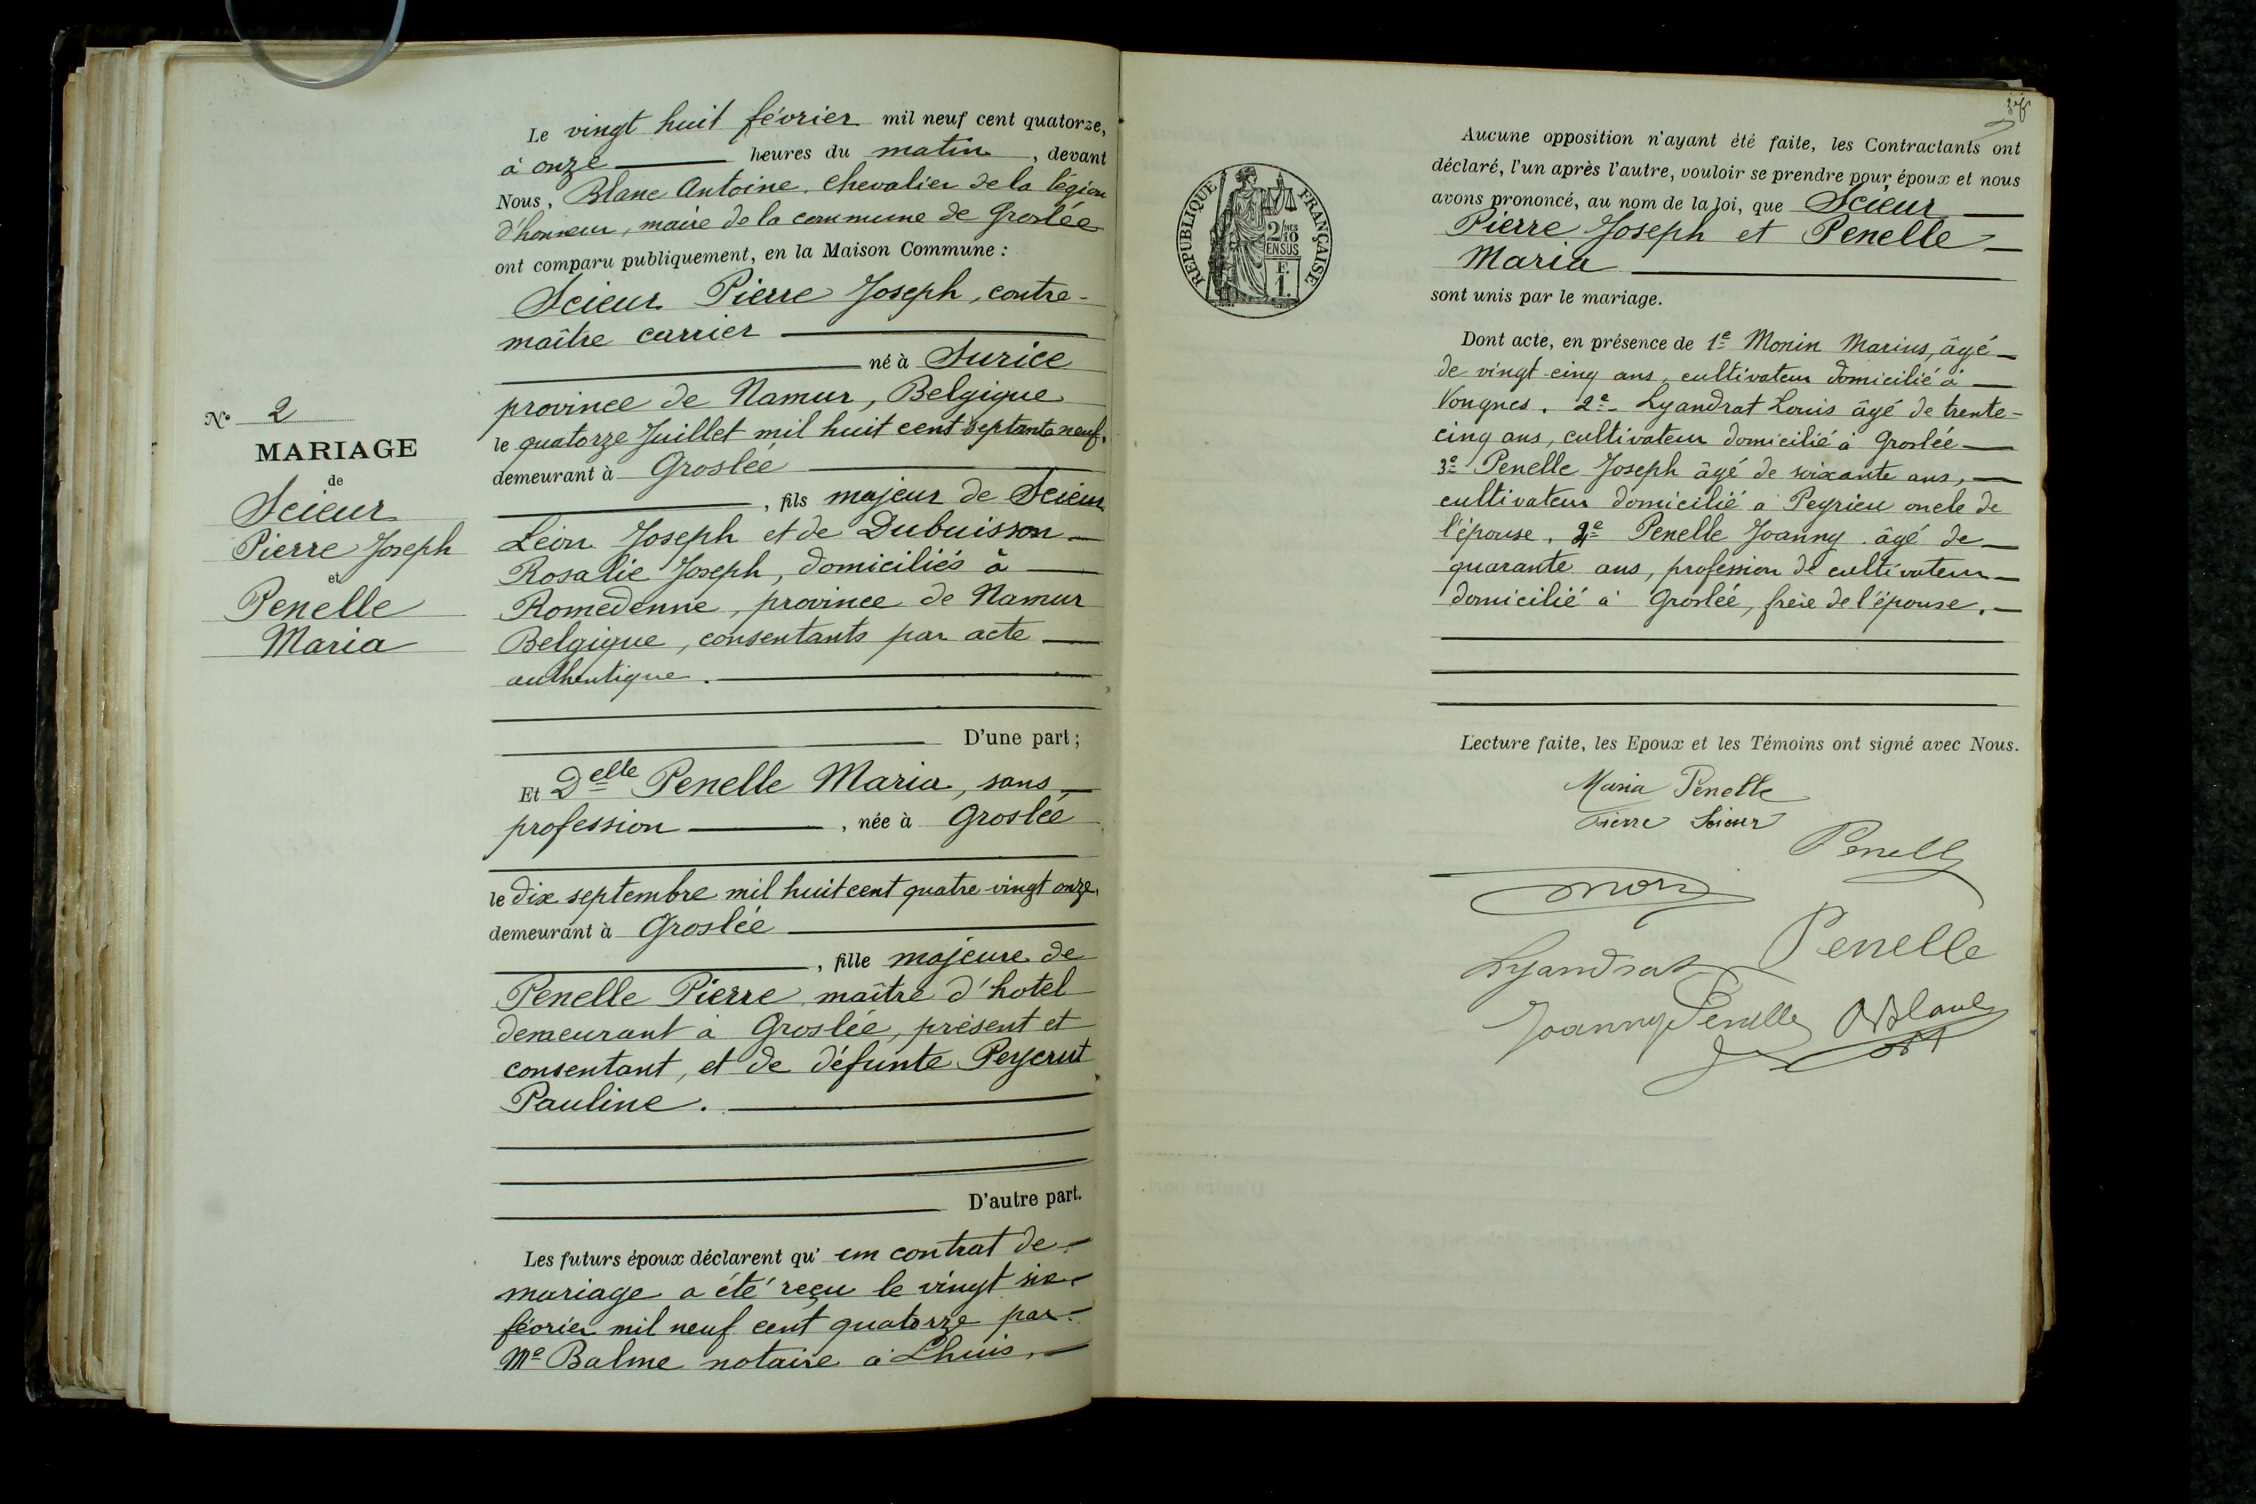 Le vingt huit février mil neuf cent quatorze,
à onze heures du matin, devant
Nous, Blanc Antoine, chevalier de la légion
d'honneur, maire de la commune de Groslée
ont comparu publiquement, en la Maison Commune :
Scieur Pierre Joseph, contre-
maître carrier
né à Surice
province de Namur, Belgique
le quatorze Juillet mil huit cent septante neuf,
demeurant à Groslée
, fils majeur de Scieur
Léon Joseph et de Dubuisson
Rosalie Joseph, domiciliés à
Romedenne, province de Namur
Belgique, consentants par acte
authentique.
D'une part ;
Et Delle Penelle Maria, sans
profession, née à Groslée
le dix septembre mil huit cent quatre-vingt onze,
demeurant à Groslée
, fille majeure de
Penelle Pierre maître d'hotel
demeurant à Groslée, présent et
consentant, et de défunte Peycrut
Pauline.
D'autre part.
Les futurs époux déclarent qu'un contrat de
mariage a été reçu le vingt six
février mil neuf cent quatorze par
Me Balme notaire à Lhuis.
No 2
MARIAGE
de
Scieur
Pierre Joseph
et
Penelle
Maria
REPUBLIQUE FRANÇAISE
2/10
EN SUS
F.
1.
Aucune opposition n'ayant été faite, les Contractants ont
déclaré, l'un après l'autre, vouloir se prendre pour époux et nous
avons prononcé, au nom de la loi, que Scieur
Pierre Joseph et Penelle
Maria
sont unis par le mariage.
Dont acte, en présence de 1e Monin Marius, âgé
de vingt-cinq ans, cultivateur domicilié à
Vongnes. 2e Lyandrat Louis âgé de trente-
cinq ans, cultivateur domicilié à Groslée
3e Penelle Joseph âgé de soixante ans,
cultivateur domicilié à Peyrieu oncle de
l'épouse. 4e Penelle Joanny âgé de
quarante ans, profession de cultivateur
domicilié à Groslée, frère de l'épouse.
Lecture faite, les Epoux et les Témoins ont signé avec Nous.
Maria Penelle
Pierre Scieur
Penelle
Lyandrat
Penelle
Joanny Penelle
ABlanc